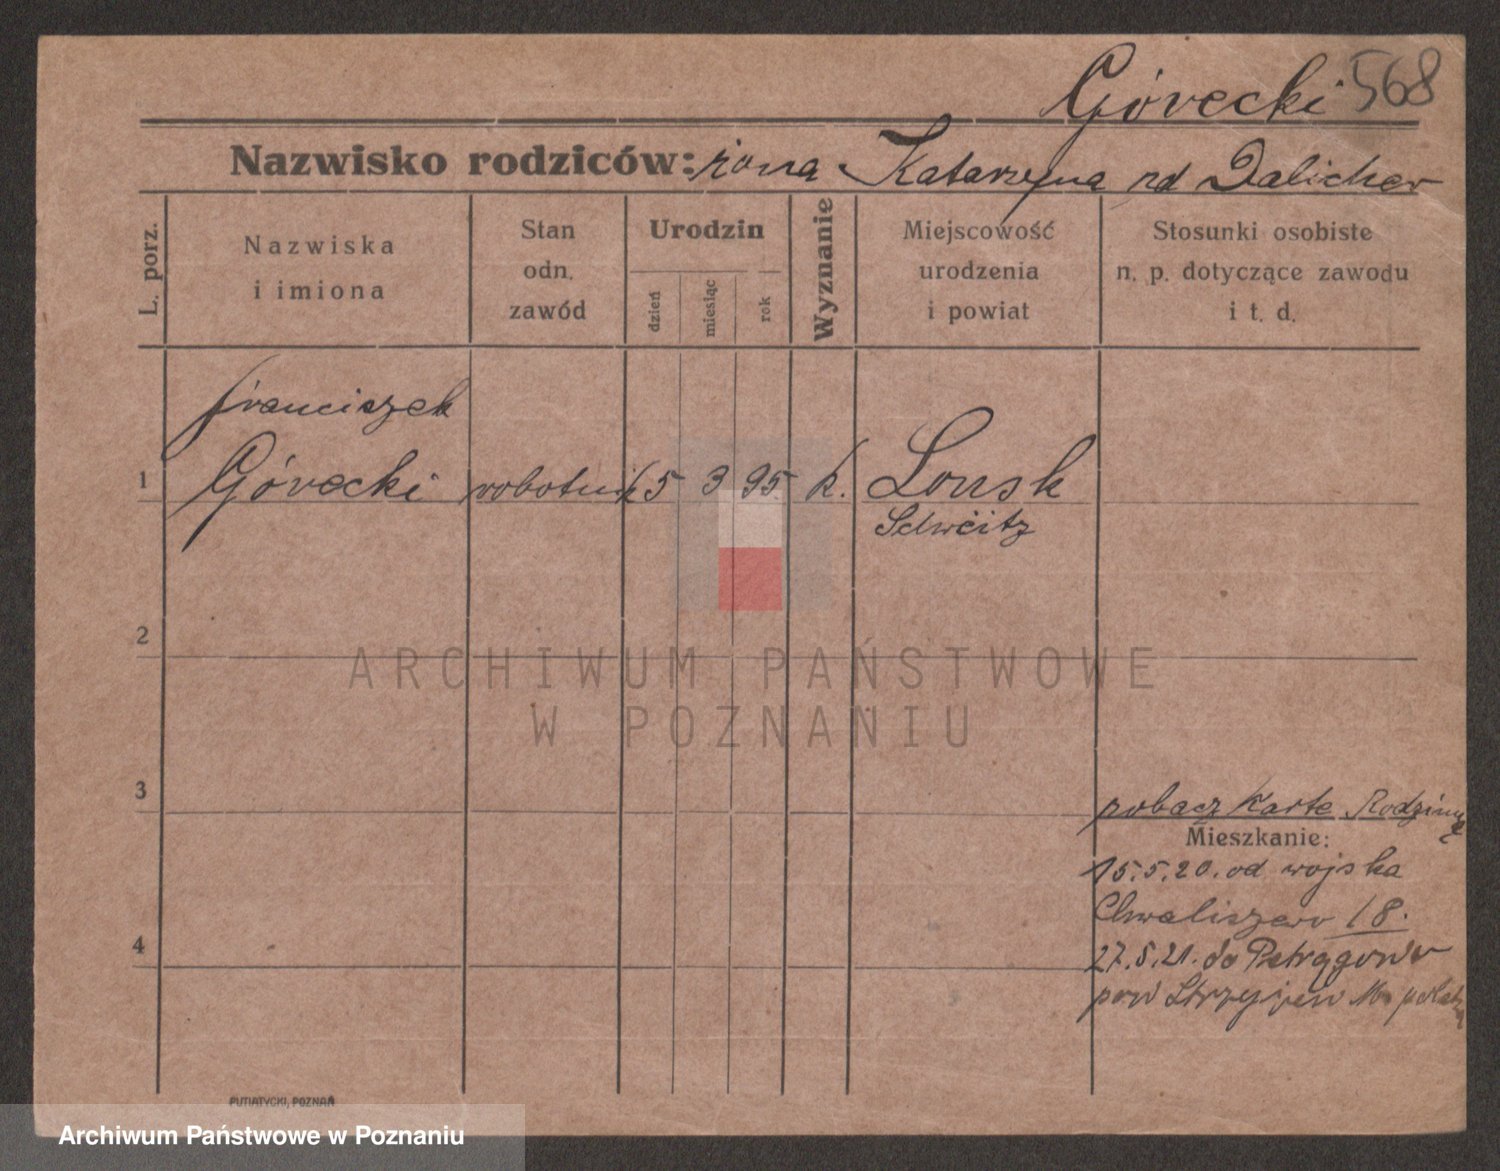 Górecki 568
Nazwisko rodziców: żona Katarzyna rd Dalicher
L. porz.
Nazwiska
i imiona
Stan
odn.
zawód
Urodzin
dzień
miesiąc
rok
Wyznanie
Miejscowość
urodzenia
i powiat
Stosunki osobiste
n. p. dotyczące zawodu
i t. d.
Franciszek
1 Górecki robotnik 5 3 95 k. Lonsk
Schweitz
2
3
zobacz Karte Rodzinną
Mieszkanie:
15.5.20. od wojska
Chwaliszewo 18.
4
27.5.21. do
pow
PUTIATYCKI, POZNAŃ
ARCHIWUM PAŃSTWOWE
W POZNANIU
Archiwum Państwowe w Poznaniu